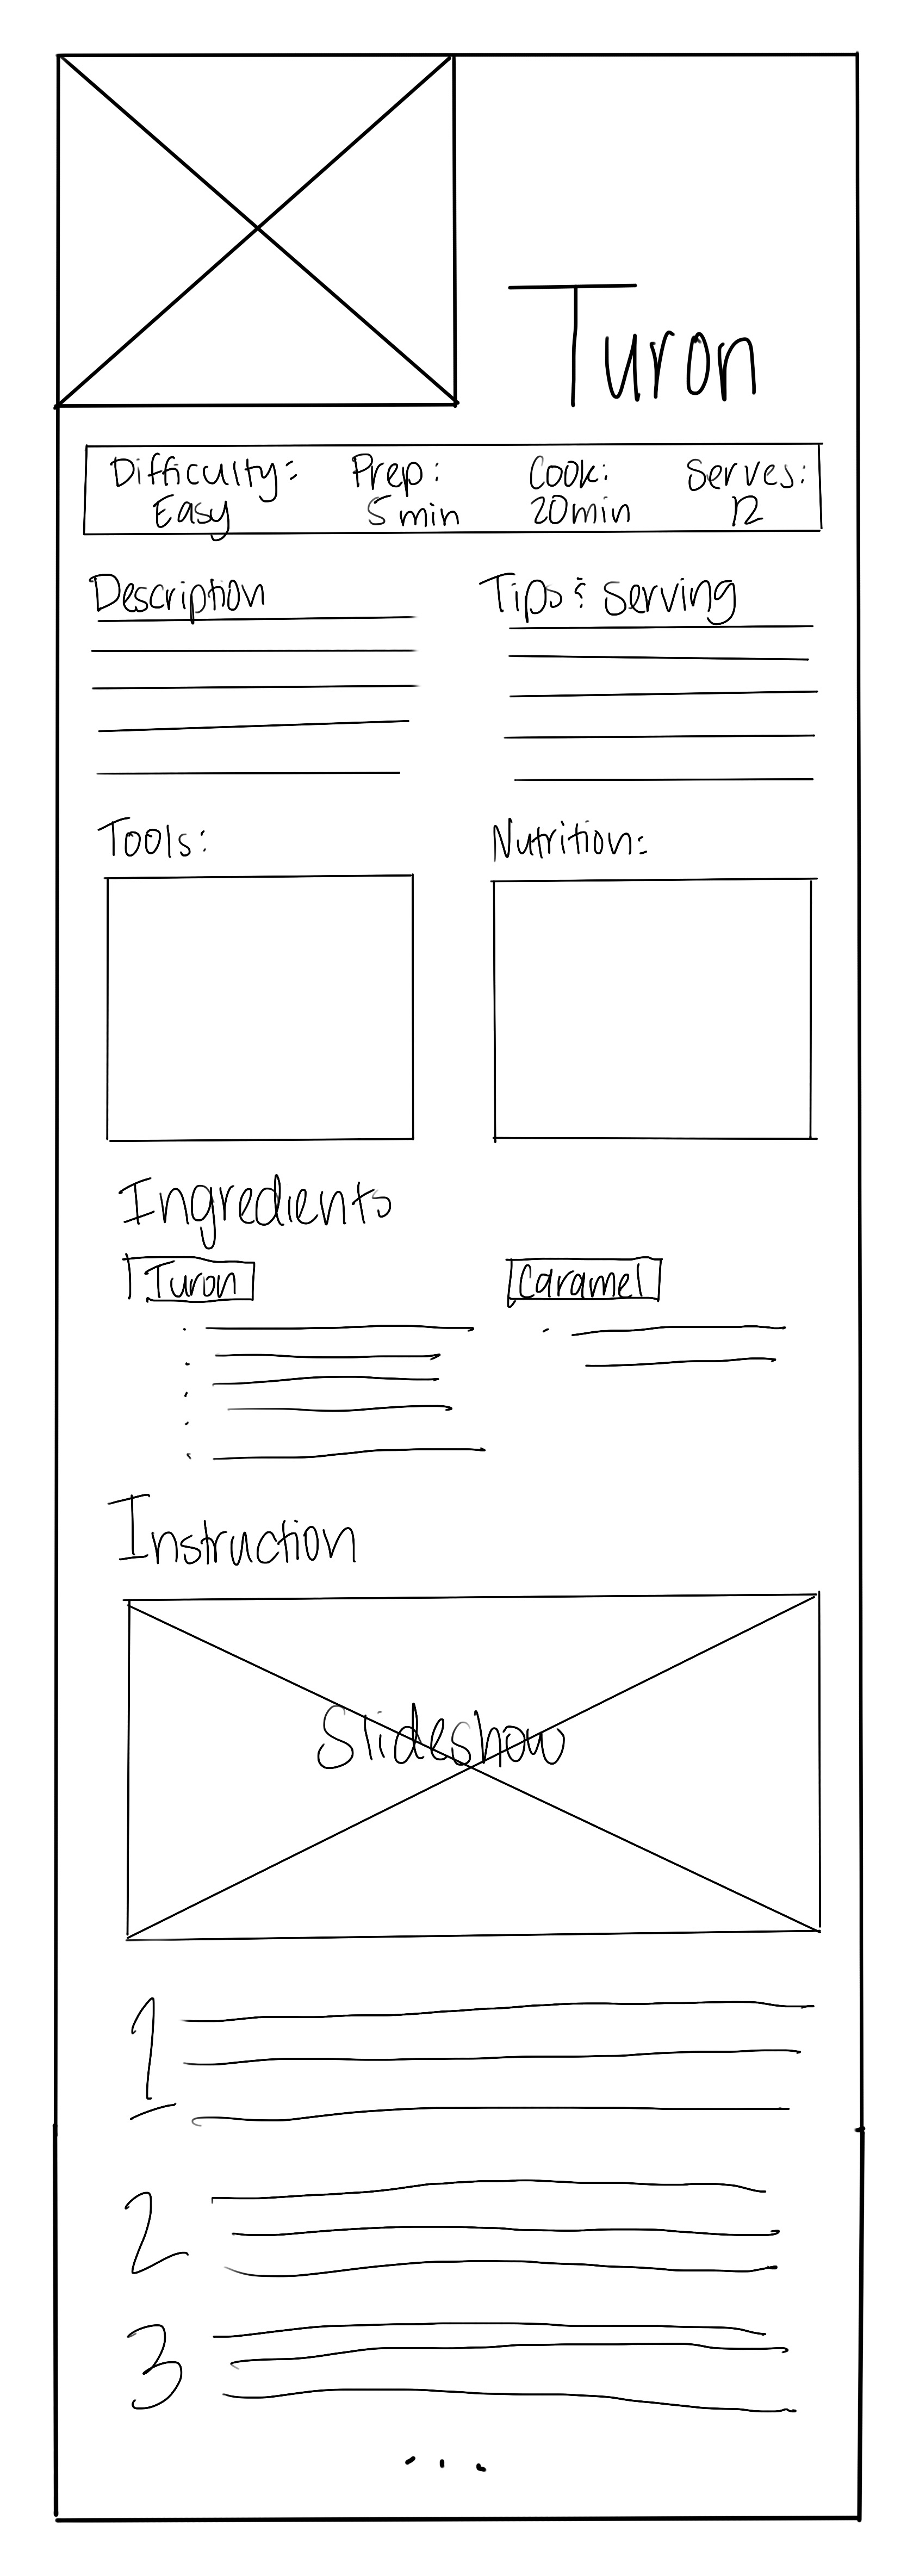 Turon
Difficulty: Prep: Cook: Serves:
Easy 5 min 20min 12
Description Tips & Serving
Tools: Nutrition:
Ingredients
Turon Caramel
Instruction
Slideshow
1
2
3
...